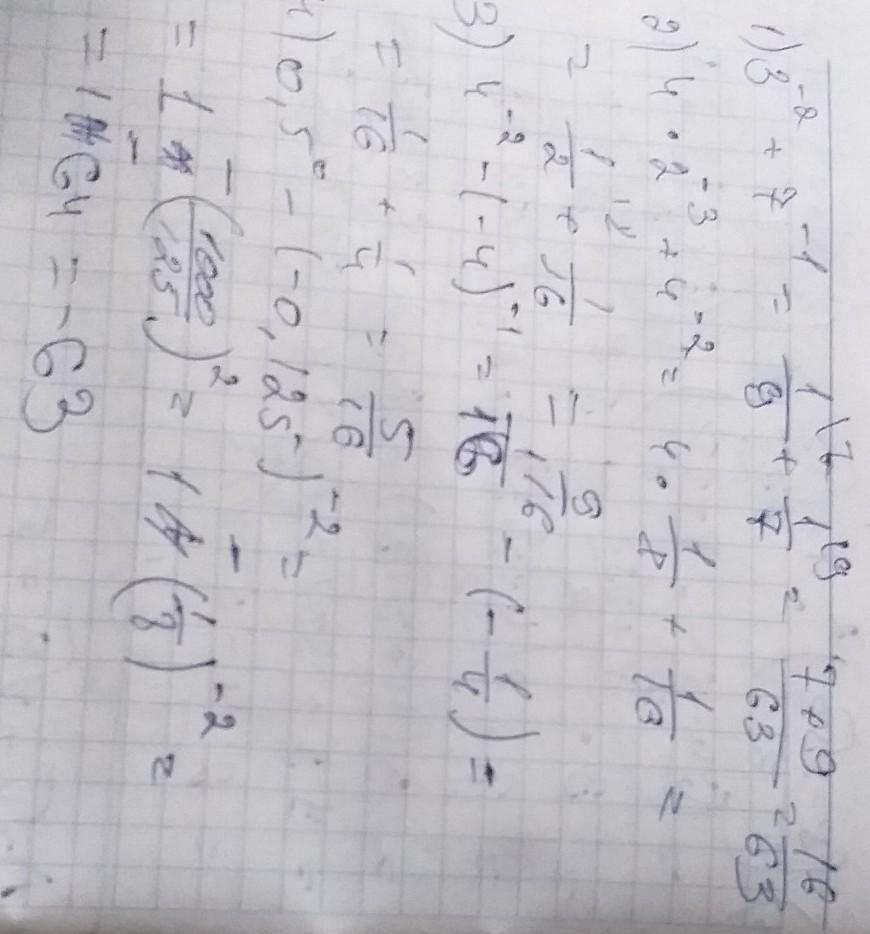 1) 3^-2 + 7^-1 = 1/9 \7 + 1/7 \9 = 7+9/63 = 16/63
2) 4 · 2^-3 + 4^-2 = 4 · 1/8 + 1/16 =
= 1/2 + 1/16 = 9/16
3) 4^-2 - (-4)^-1 = 1/16 - (-1/4) =
= 1/16 + 1/4 = 5/16
4) 0,5^0 - (-0,125)^-2 =
= 1 - (1000/125)^2 = 1 - (1/8)^-2 =
= 1 - 64 = -63